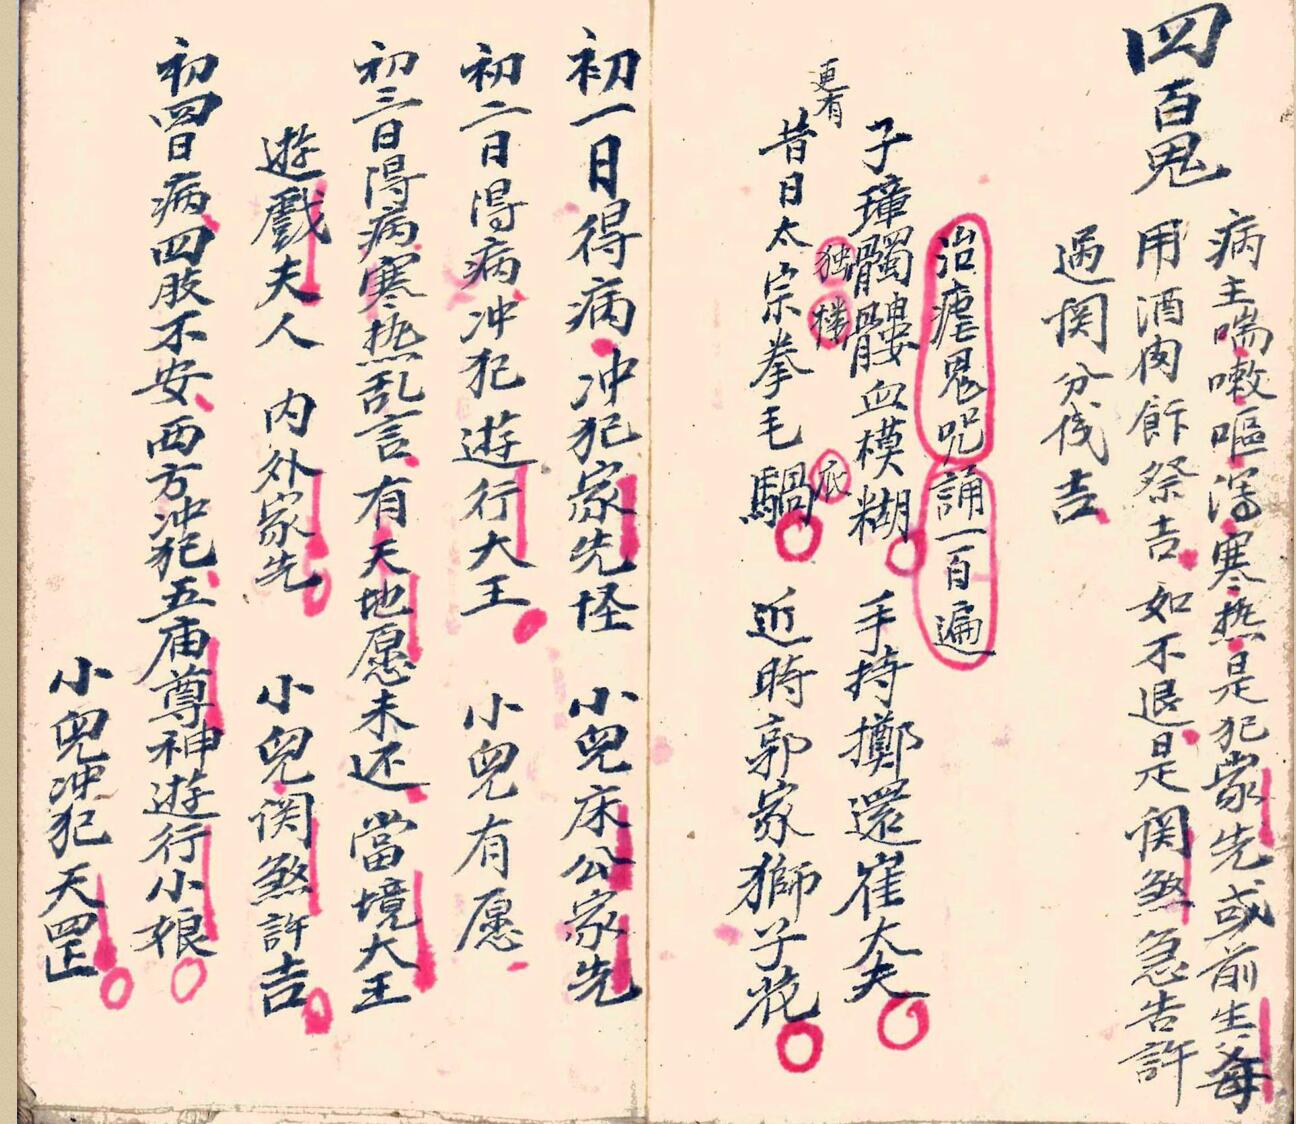 四百鬼
病主喘嗽嘔瀉寒热是犯家先或前生爷母
用酒肉飰祭吉如不退是関煞急告許
過関分伐吉
治瘧鬼咒誦一百遍
子璋髑髏血模糊 手持擲還崔大夫
独 摟
更有
昔日太宗拳毛騧 近時郭家獅子花
底
初一日得病冲犯家先怪 小兒床公家先
初二日得病冲犯遊行大王 小兒有愿
初三日得病寒热乱言有天地愿未还當境大王
遊戲夫人 内外家先 小兒関煞許吉
初四日病四肢不安西方冲犯五庙尊神遊行小娘
小兒冲犯天罡